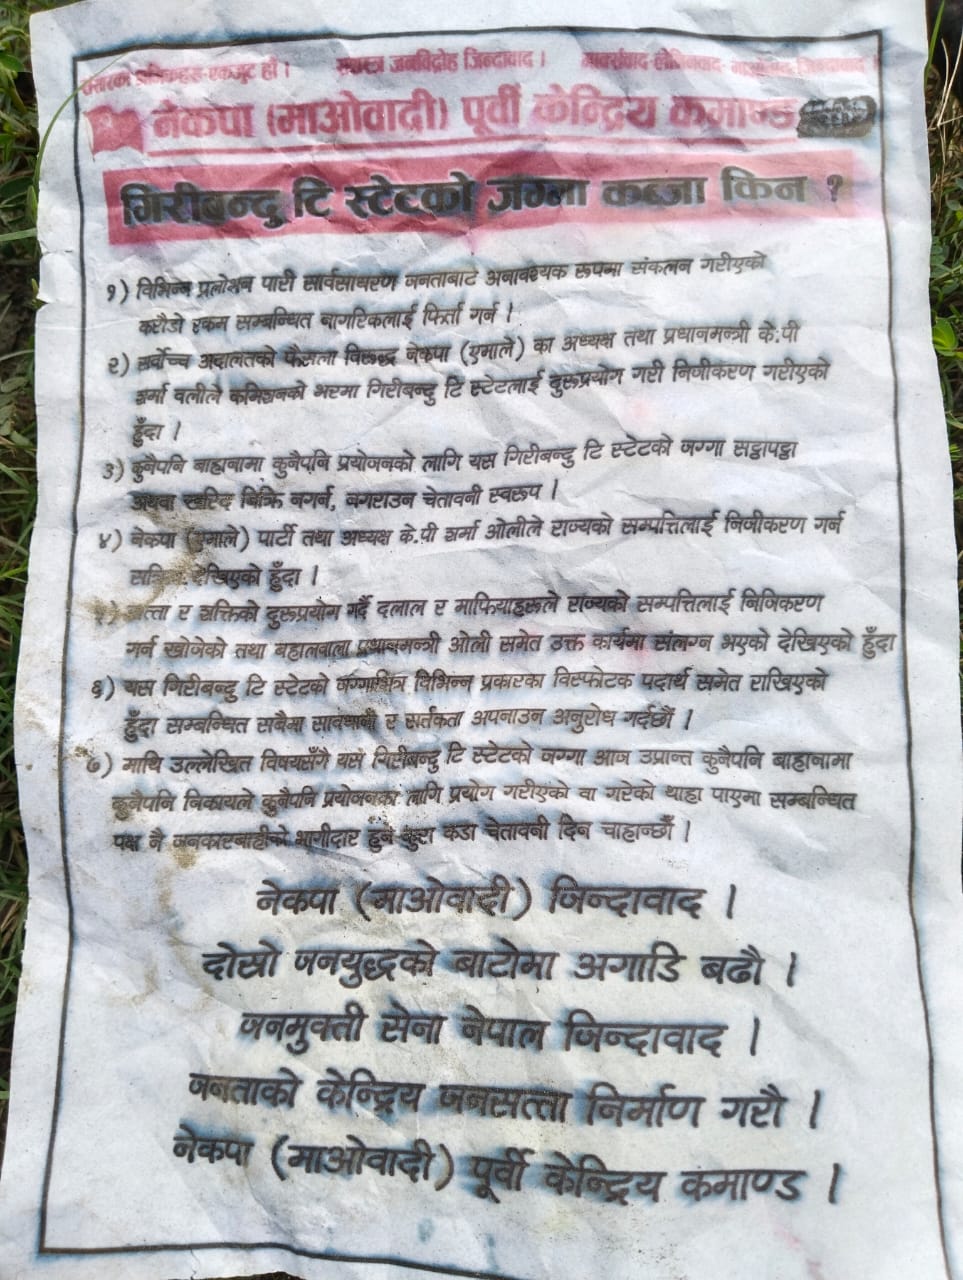 संसारका श्रमिकहरु एकजुट हौं । सशस्त्र जनविद्रोह जिन्दावाद । मार्क्सवाद-लेनिनवाद- माओवाद जिन्दावाद ।
नेकपा (माओवादी) पूर्वी केन्द्रिय कमाण्ड
गिरीबन्दु टि स्टेटको जग्गा कब्जा किन ?
१) विभिन्न प्रलोभन पारी सार्वसाधरण जनताबाट अनावश्यक रूपमा संकलन गरीएको
करौडो रकम सम्बन्धित नागरिकलाई फिर्ता गर्न ।
२) सर्वोच्च अदालतको फैसला विरूद्ध नेकपा (एमाले) का अध्यक्ष तथा प्रधानमन्त्री के.पी
शर्मा वलीले कमिशनको भरमा गिरीबन्दु टि स्टेटलाई दुरूप्रयोग गरी निजीकरण गरीएको
हुँदा ।
३) कुनैपनि बाहानामा कुनैपनि प्रयोजनको लागि यस गिरीबन्दु टि स्टेटको जग्गा सट्टापट्टा
अथवा खरिद बिक्रि नगर्न, नगराउन चेतावनी स्वरूप ।
४) नेकपा (एमाले) पार्टी तथा अध्यक्ष के.पी शर्मा ओलीले राज्यको सम्पत्तिलाई निजीकरण गर्न
सक्रिय देखिएको हुँदा ।
५) सत्ता र शक्तिको दुरूप्रयोग गर्दै दलाल र माफियाहरूले राज्यको सम्पत्तिलाई निजिकरण
गर्न खोजेको तथा बहालवाला प्रधानमन्त्री ओली समेत उक्त कार्यमा संलग्न भएको देखिएको हुँदा
६) यस गिरीबन्दु टि स्टेटको जग्गाभित्र विभिन्न प्रकारका विस्फोटक पदार्थ समेत राखिएको
हुँदा सम्बन्धित सबैमा सावधानी र सर्तकता अपनाउन अनुरोध गर्दछौं ।
७) माथि उल्लेखित विषयसँगै यस गिरीबन्दु टि स्टेटको जग्गा आज उप्रान्त कुनैपनि बाहानामा
कुनैपनि निकायले कुनैपनि प्रयोजनका लागि प्रयोग गरीएको वा गरेको थाहा पाएमा सम्बन्धित
पक्ष नै जनकारबाहीको भागीदार हुने कुरा कडा चेतावनी दिन चाहान्छौं ।
नेकपा (माओवादी) जिन्दावाद ।
दोस्रो जनयुद्धको बाटोमा अगाडि बढौ ।
जनमुक्ती सेना नेपाल जिन्दावाद ।
जनताको केन्द्रिय जनसत्ता निर्माण गरौ ।
नेकपा (माओवादी) पूर्वी केन्द्रिय कमाण्ड ।